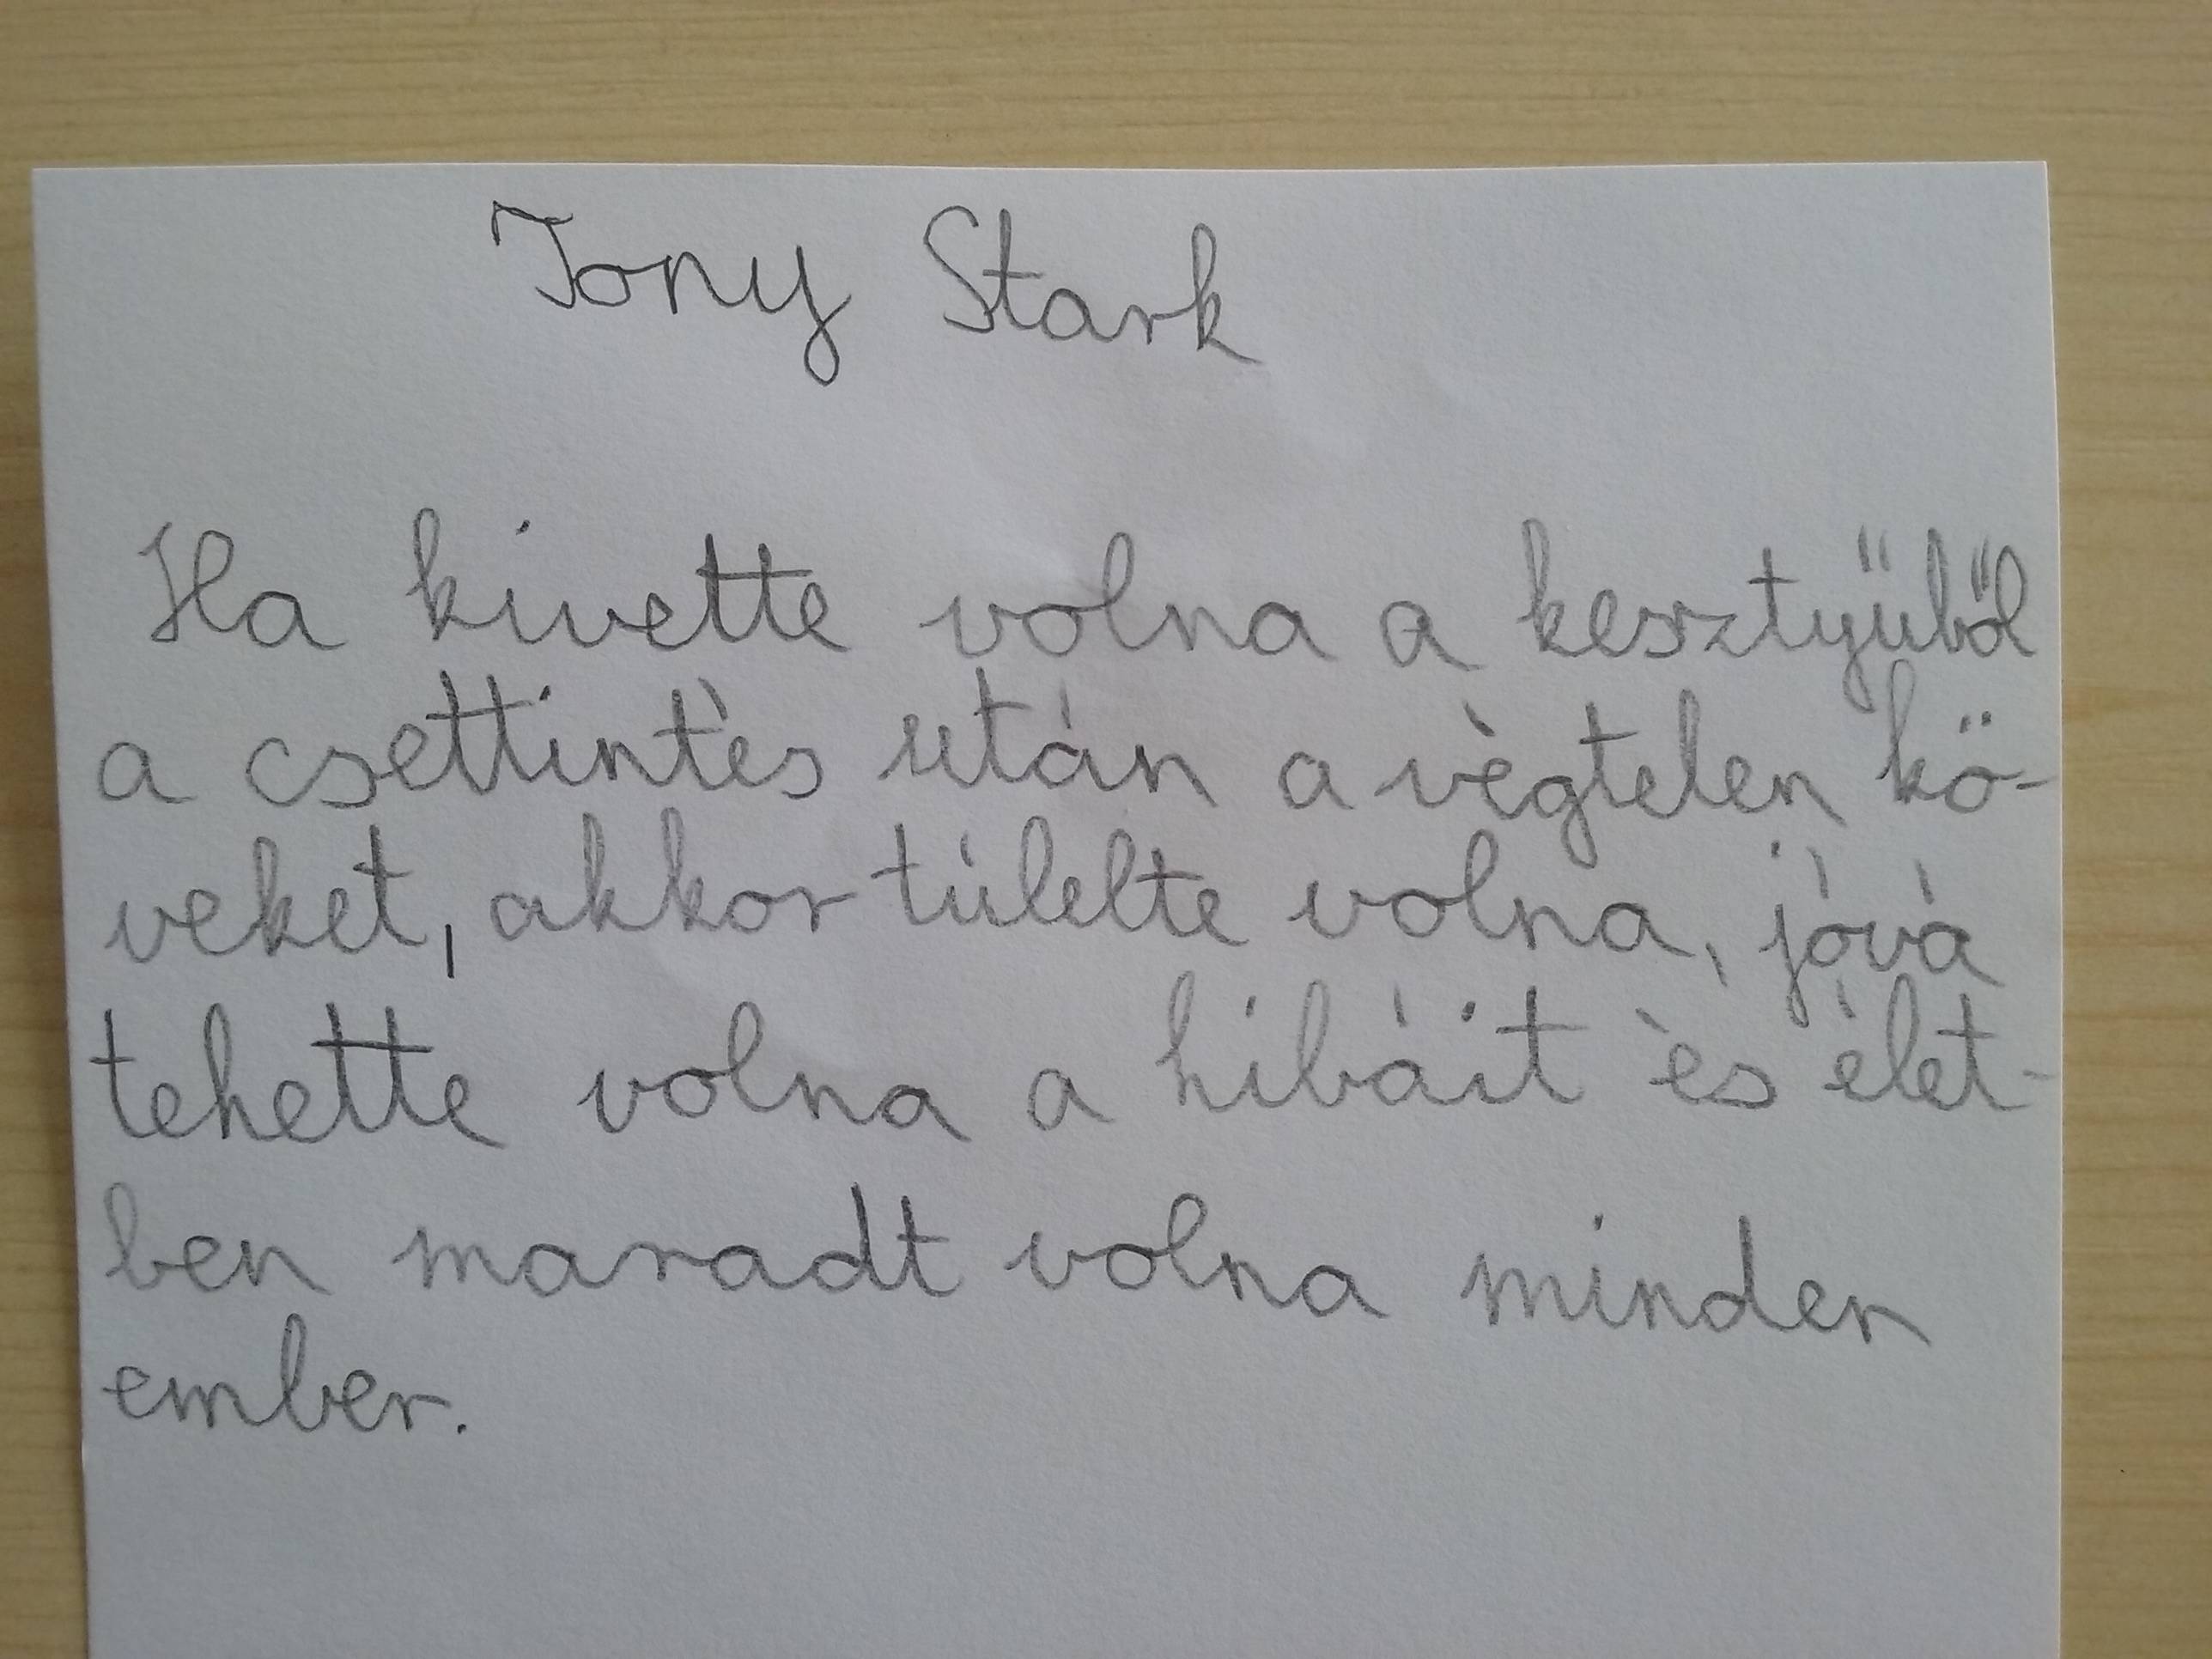 Tony Stark
Ha kivette volna a kesztyűből
a csettintés után a végtelen kö-
veket, akkor túlélte volna, jóvá
tehette volna a hibáit és élet-
ben maradt volna minden
ember.